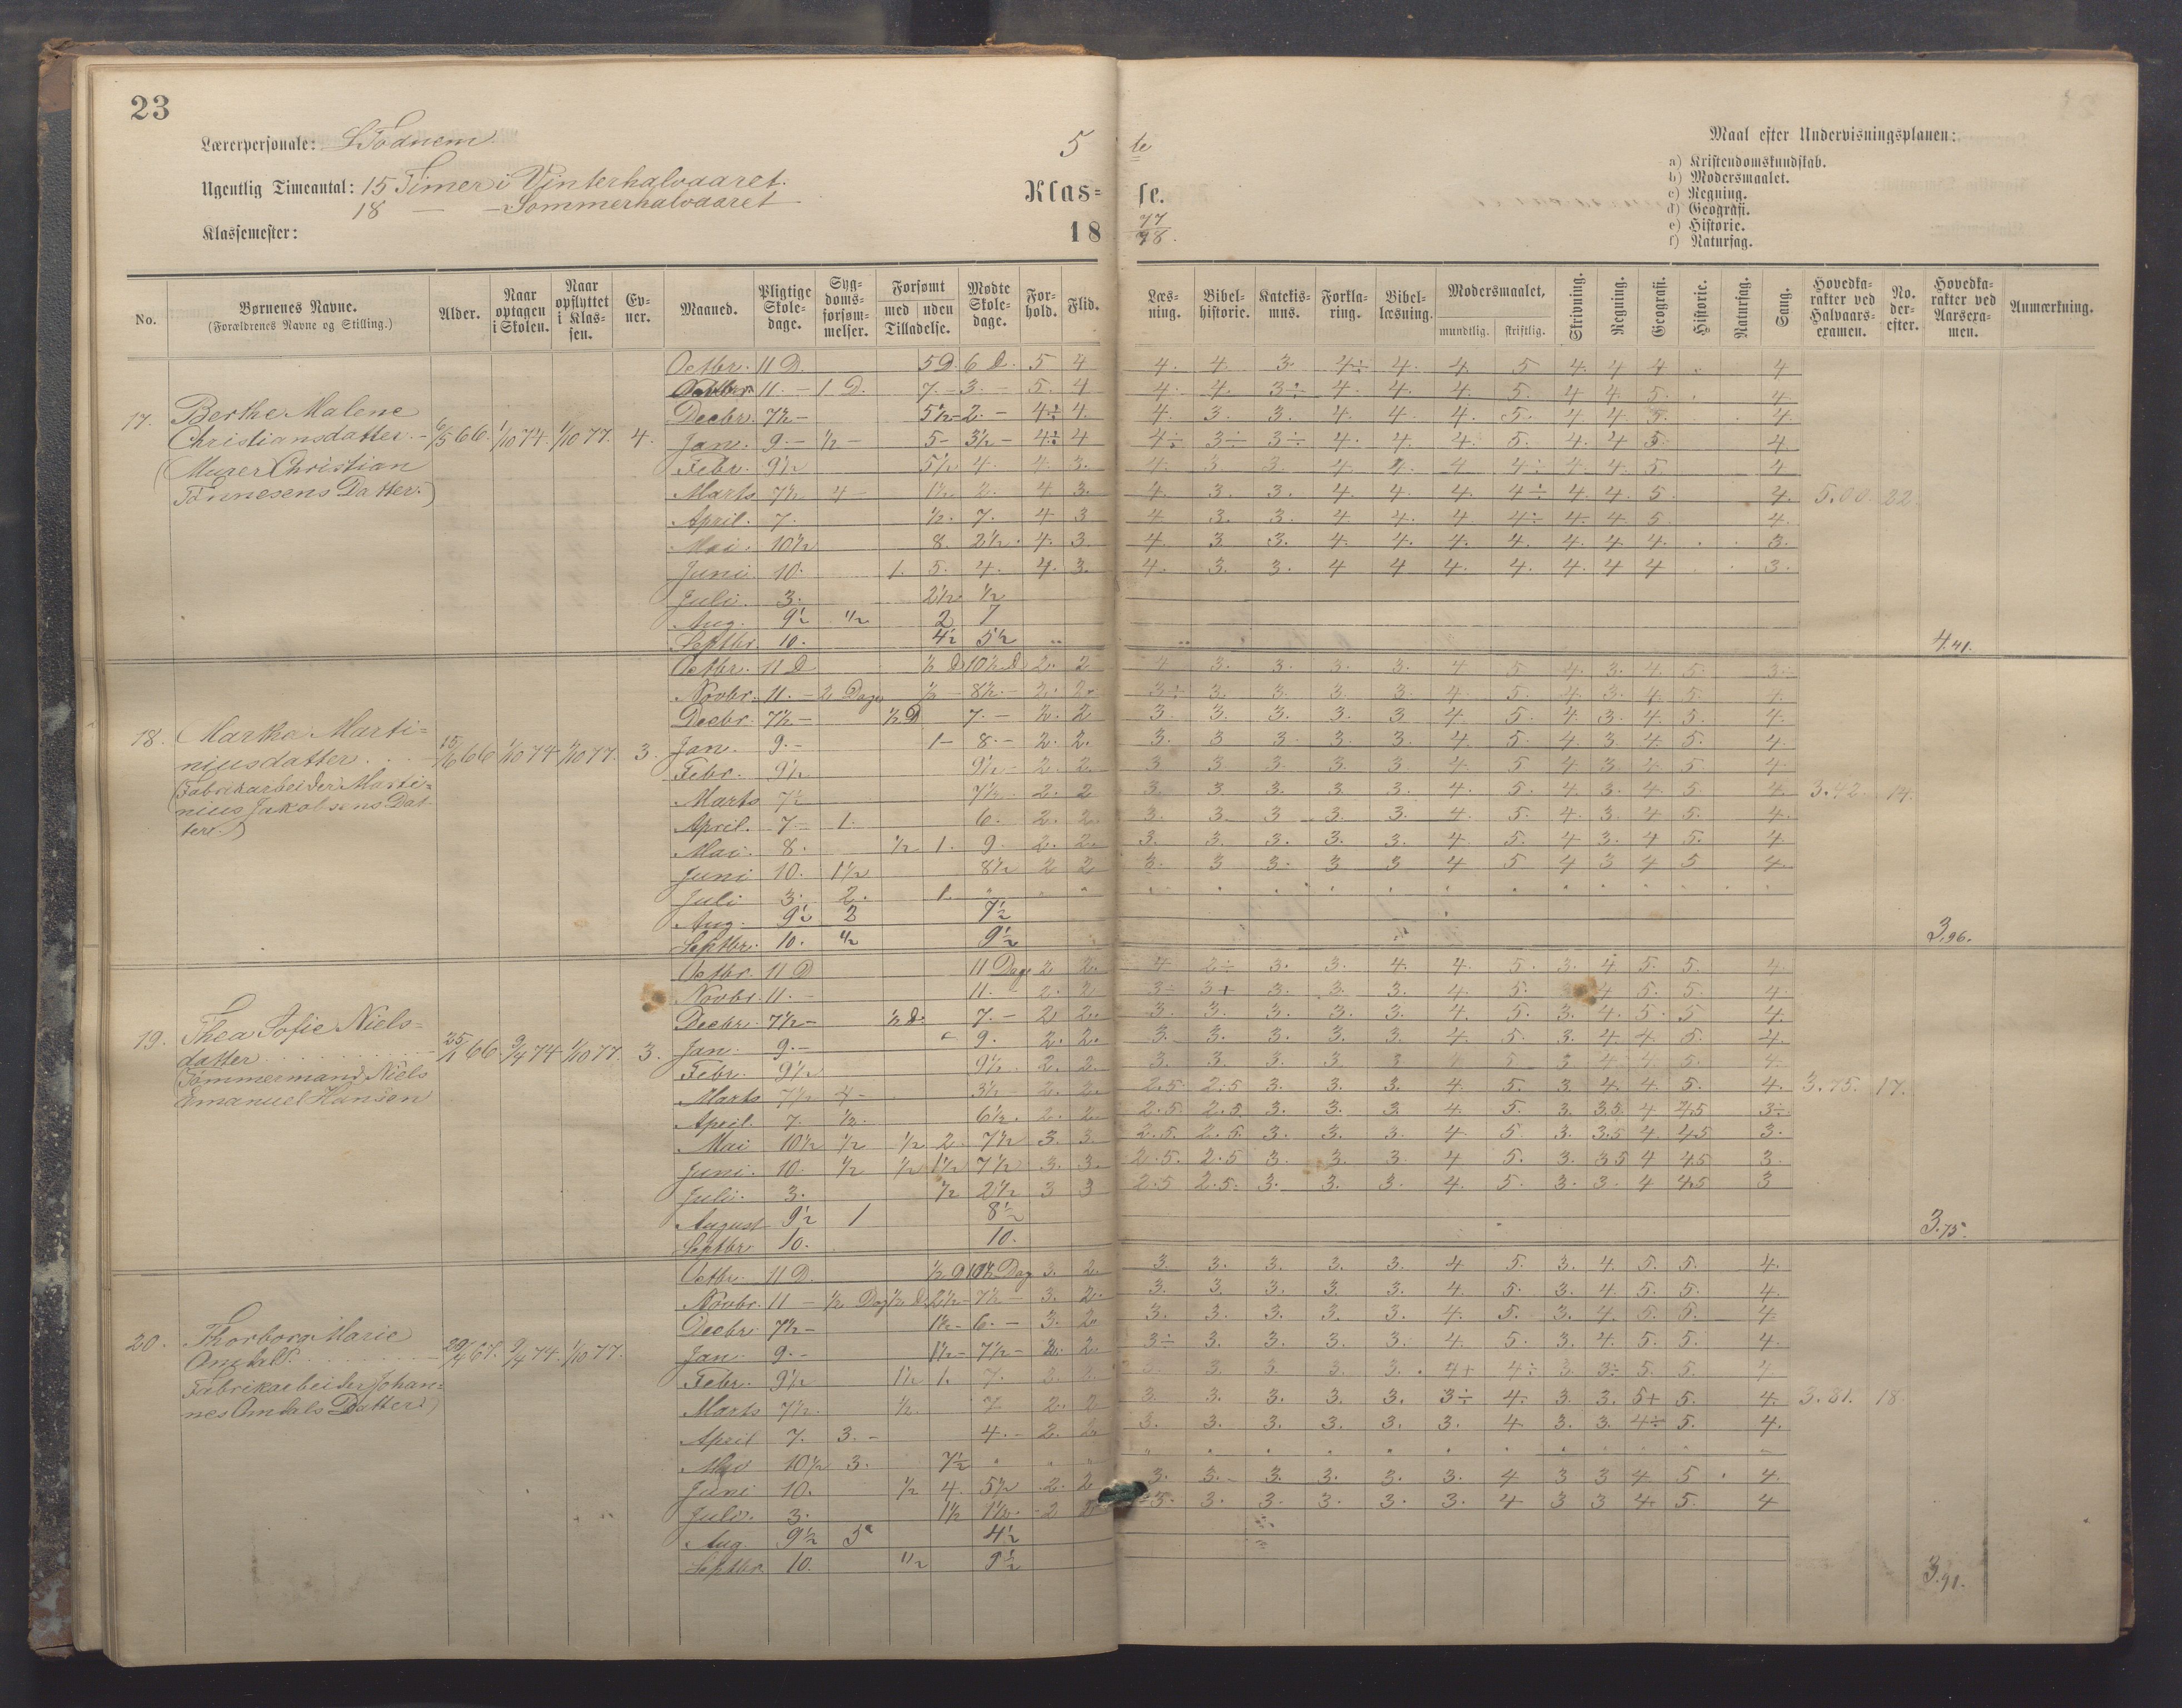 23
Lærerpersonale: S Tødnem
5 te
Ugentlig Timeantal: 15 Timer i Vinterhalvaaret.
18 — — Sommerhalvaaret
Klas= se.
Klassemester:
18 77/78.
Maal efter Undervisningsplanen:
a) Kristendomskundskab.
b) Modersmaalet.
c) Regning.
d) Geografi.
e) Historie.
f) Naturfag.
No. Børnenes Navne. (Forældrenes Navne og Stilling.) Alder. Naar optagen i Skolen. Naar opflyttet i Klassen. Evner. Maaned. Pligtige Skoledage. Sygdomsforsømmelser. Forsømt med uden Tilladelse. Mødte Skoledage. Forhold. Flid. Læsning. Bibelhistorie. Katekismus. Forklaring. Bibellæsning. Modersmaalet, mundtlig. skriftlig. Skrivning. Regning. Geografi. Historie. Naturfag. Sang. Hovedkarakter ved Halvaarsexamen. No. derefter. Hovedkarakter ved Aarsexamen. Anmærkning.
17. Berthe Malene
Christiansdatter. 6/5 66. 1/10 74. 1/10 77. 4.
(Murer Christian
Tønnesens Datter.)
Octbr. 11 D. 5 D. 6 D. 5 4 4. 4. 3 4÷ 4. 4. 5 4. 4 4 4
Novbr. 11. — 1 D. 7. — 3. — 5. 4 4. 4. 3÷ 4. 4. 4. 5. 4 4. 5. 4
Decbr. 7½ — 5½ — 2. — 4÷ 4. 4. 3. 3. 4. 4. 4. 5. 4 4. 5. 4.
Jan. 9. — ½ — 5 — 3½ — 4÷ 4 4÷ 3÷ 3÷ 4. 4. 4. 5. 4. 4 5. 4
Febr. 9½ 5½ 4. 4. 3. 4. 3 3. 4 4. 4 4÷ 4. 4. 5 4
Marts 7½ 4 — 1½ 2. 4 3. 4. 3. 3. 4. 4. 4. 4÷ 4. 4. 5 4. 5.00 22.
April. 7. ½. 7. 4 3 4 3. 3. 4 4. 4 4÷ 4. 4 5 4.
Mai. 10½ 8. 2½. 4. 3 4. 3 3. 4. 4. 4. 4. 4. 4. 4. 3.
Juni. 10. 1. 5. 4. 4. 3. 4. 3. 3. 4 4 4. 4. 4. 4 4 3.
Juli. 3. 2½ ½
Aug. 9½ ½ 2 7
Septbr. 10. 4½ 5½ 4.41.
18. Martha Marti=
niusdatter. 15/6 66 1/10 74 1/10 77. 3.
(Fabrikarbeider Marti=
nius Jakobsens Dat
ter.)
Octbr. 11 D ½ D 10½ D 2. 2 4 3. 3. 3. 3. 4 5 4. 3. 4. 5. 3÷
Novbr. 11. — 2 Dage ½ — 8½. — 2. 2. 3÷ 3. 3. 3. 3. 4. 5. 4 3. 4 5. 4.
Decbr. 7½ — ½ D 7. — 2. 2 3. 3. 3. 3. 3 4 5. 4. 3. 4. 5. 4.
Jan. 9. — 1 — 8. — 2. 2. 3. 3 3. 3. 3. 4. 5. 4 3. 4 5. 4.
Febr. 9½ 9½ — 2. 2. 3 3 3. 3. 3 4. 5 4 3 4 5 4.
Marts 7½ 7½ 2. 2 3. 3 3. 3. 3. 4. 5. 4 3. 4 5. 4. 3.42. 14.
April. 7 — 1. 6. 2. 2. 3. 3. 3 3. 3. 4. 5. 4. 3. 4 5. 4.
Mai. 8. ½ 1. 9. 2. 2. 3. 3. 3. 3. 3. 4. 5. 4 3. 4 5. 4
Juni 10. 1½ 8½ 2 2 3. 3 3. 3. 3 4 5 4 3 4 5 4.
Juli 3. 2. 1.
Aug. 9½ 2 7½
Septbr. 10. ½ 9½ 3.96.
19. Thea Sofie Niels=
datter 25/1 66. 9/4 74. 1/10 77. 3.
(Tømmermand Niels
Emanuel Hansen
Octbr. 11 D 11 Dage 2 2. 4 2÷ 3. 3. 4. 4. 5. 3. 4 5. 5. 4.
Novbr. 11. — 11. — 2. 2 3÷ 3+ 3. 3. 3. 4. 5. 4 5. 5. 4.
Decbr. 7½ — ½ D. 7. — 2 2. 3. 3. 3. 3. 3. 4 5. 3. 4. 5. 5 4.
Jan. 9. — 9. 2. 2. 3. 3. 3. 3. 3. 4. 5. 3. 4 4. 5. 4.
Febr. 9½ 9½ 2. 2. 3. 3. 3. 3. 3 4 5 3 4 4 5. 4.
Marts 7½ 4 — 3½ 2. 2. 2.5 2.5 3. 3. 3. 4 5. 3. 4. 4. 5. 4. 3.75. 17.
April. 7. ½. 6½. 2. 2. 2.5. 2.5. 3. 3. 3. 4 5. 3. 3.5. 4 4.5 3÷
Mai 10½ ½ ½ 2. 7½ 3. 3. 2.5. 2.5. 3. 3. 3. 4 5 3. 3.5 4 4.5 3.
Juni. 10. ½ ½ 1½ 7½ 3. 3. 2.5. 2.5 3. 3. 3. 4 5. 3. 3.5 4 4.5 3.
Juli. 3. ½ 2½ 3 3 2.5 2.5. 3. 3. 3. 4. 5. 3. 3. 4 4.5 3
August 9½ 1 8½
Septbr. 10. 10. 3.75.
20. Thorborg Marie
Omdal. 20/4 67. 9/4 74. 1/10 77.
Fabrikarbeider Johan=
nes Omdals Datter)
Octbr. 11 D. ½ D 10½ Dag 3. 2. 3. 3. 3. 3. 3. 4 5. 3. 4. 5. 5. 4.
Novbr. 11 — ½ Dag ½ D. 2½ — 7½ — 3. 2. 3. 3. 3. 3. 3. 4. 5. 3. 4. 5 5. 4.
Decbr. 7½ — 1½ — 6. — 3. 2. 3. 3. 3. 3. 3. 4. 5. 3. 4. 5. 5. 4.
Jan. 9. — 1½ — 7½ — 2. 2. 3÷ 3. 3. 3. 3. 4. 5. 3. 4. 5. 5. 4.
Febr. 9½ 1½ 1. 7. 3. 2. 3. 3. 3. 3. 3. 4+ 4÷ 3 3÷ 5. 5. 4
Marts 7½. ½. 7 2. 2 3. 3. 3. 3. 3. 3÷ 4. 3. 3. 5+ 5. 4. 3.81. 18.
April 7. 3. — 4. — 2. 2. 3. 3. 3. 3. 3. 3. 4 3. 3. 4÷ 5. 4.
Mai 10½ 3. 7½
Juni 10. ½ 4. 5½ 2. 2 3. 3. 3. 3. 3. 3. 4 3 3 4 5 4.
Juli. 3. 1½ 1½. 2 2 3. 3. 3. 3. 3. 3. 4 3 3 4 5. 4
Aug. 9½ 5 4½
Septbr 10. ½ 9½ 3.91.